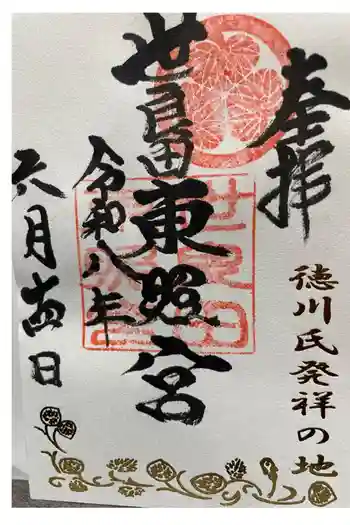 奉拝
徳川氏発祥の地
世良田東照宮
世良田
令和八年
六月十四日